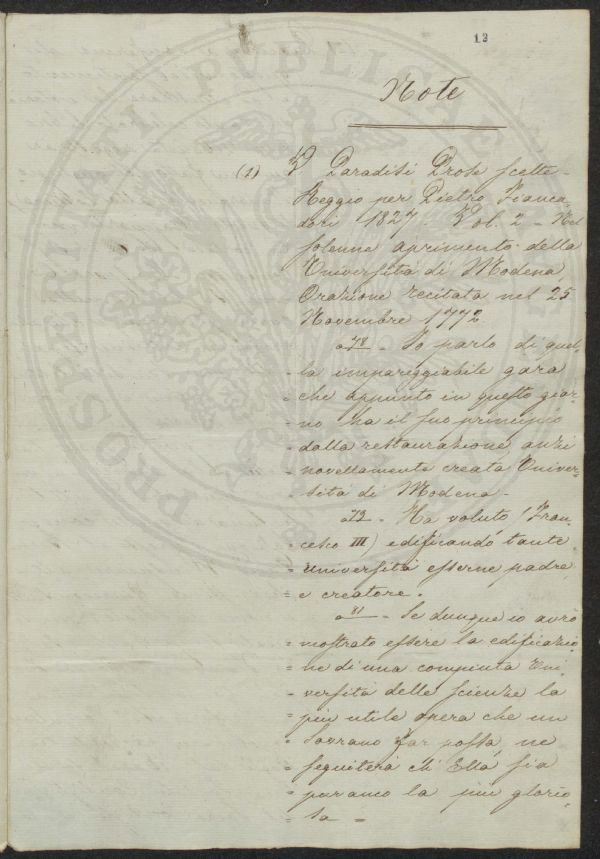 12
Note
(1) V Paradisi Prose scelte -
Reggio per Pietro Fiacca-
dori 1827 - Vol. 2 - Nel
solenne aprimento della
Università di Modena
Orazione recitata nel 25
Novembre 1772.
a 78 - Io parlo di quel-
= la impareggiabile gara
= che appunto in questo gior-
= no ha il suo principio
= dalla restaurazione, anzi
= novellamente creata Univer-
= sità di Modena -
a 79 - Ha voluto (Fran-
= cesco III) edificando tante
= università esserne padre,
= e creatore.
a 81 - Se dunque io avrò
= mostrato essere la edificazio-
= ne di una compiuta Uni-
= versità delle scienze la
= più utile opera che un
= Sovrano far possa, ne
= seguiterà ch'Ella sia
= puranco la più glorio-
= sa =
PROSPERITATI PUBLICAE